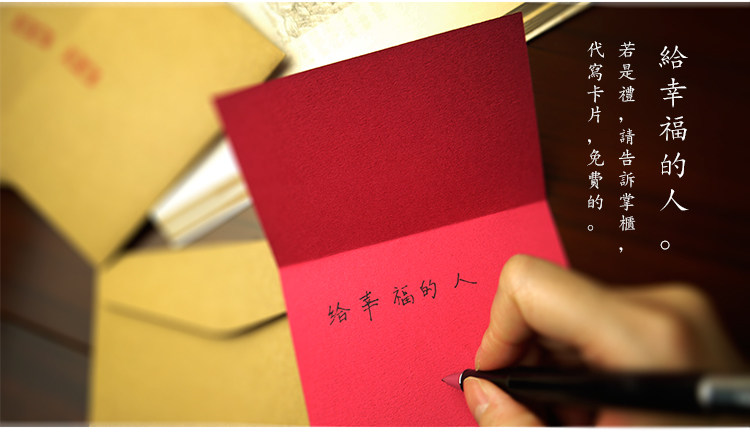 給幸福的人。
若是禮，請告訴掌櫃，
代寫卡片，免費的。
给幸福的人